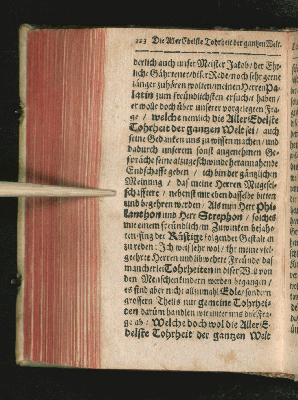 223 Die AllerEdelste Tohrheit der gantzen Welt.
derlich auch unser Meister Jakob/ der Ehr-
liche Gährtener/ diser Rede noch sehr gerne
länger zuhören wolten/ meinen Herren Pa-
latin zum freundlichsten ersuchet haben/
er wolle doch über unserer vorgelegten Fra-
ge / welche nemlich die AllerEdelste
Tohrheit der gantzen Welt sei / auch
seine Gedanken uns zu wissen machen/ und
dadurch unserem sonst angenehmen Ge-
spräche seine alzugeschwinde herannahende
Endschafft geben / ich bin der gäntzlichen
Meinung / daß meine Herren Mitgesel-
schaftere / nebenst mir eben dasselbe bitten
und begehren werden. Als nun Herr Phi-
lanthon und Herr Strephon / solches
mit einem freundlichen Zuwinken bejahe-
ten/ fing der Rüstige folgender Gestalt an
zu reden: Ich weis sehr wol / ihr meine viel-
gehrte Herren und libwehrte Freunde das
mancherlei Tohrheiten in diser Welt von
den Menschenkindern werden begangen /
es sind aber nicht allzumahl Edle/ sondern
grössern Theils nur gemeine Tohrhei-
ten darüm handlen wir unter uns die Fra-
ge ab: Welche doch wol die AllerE-
delste Tohrheit der gantzen Welt